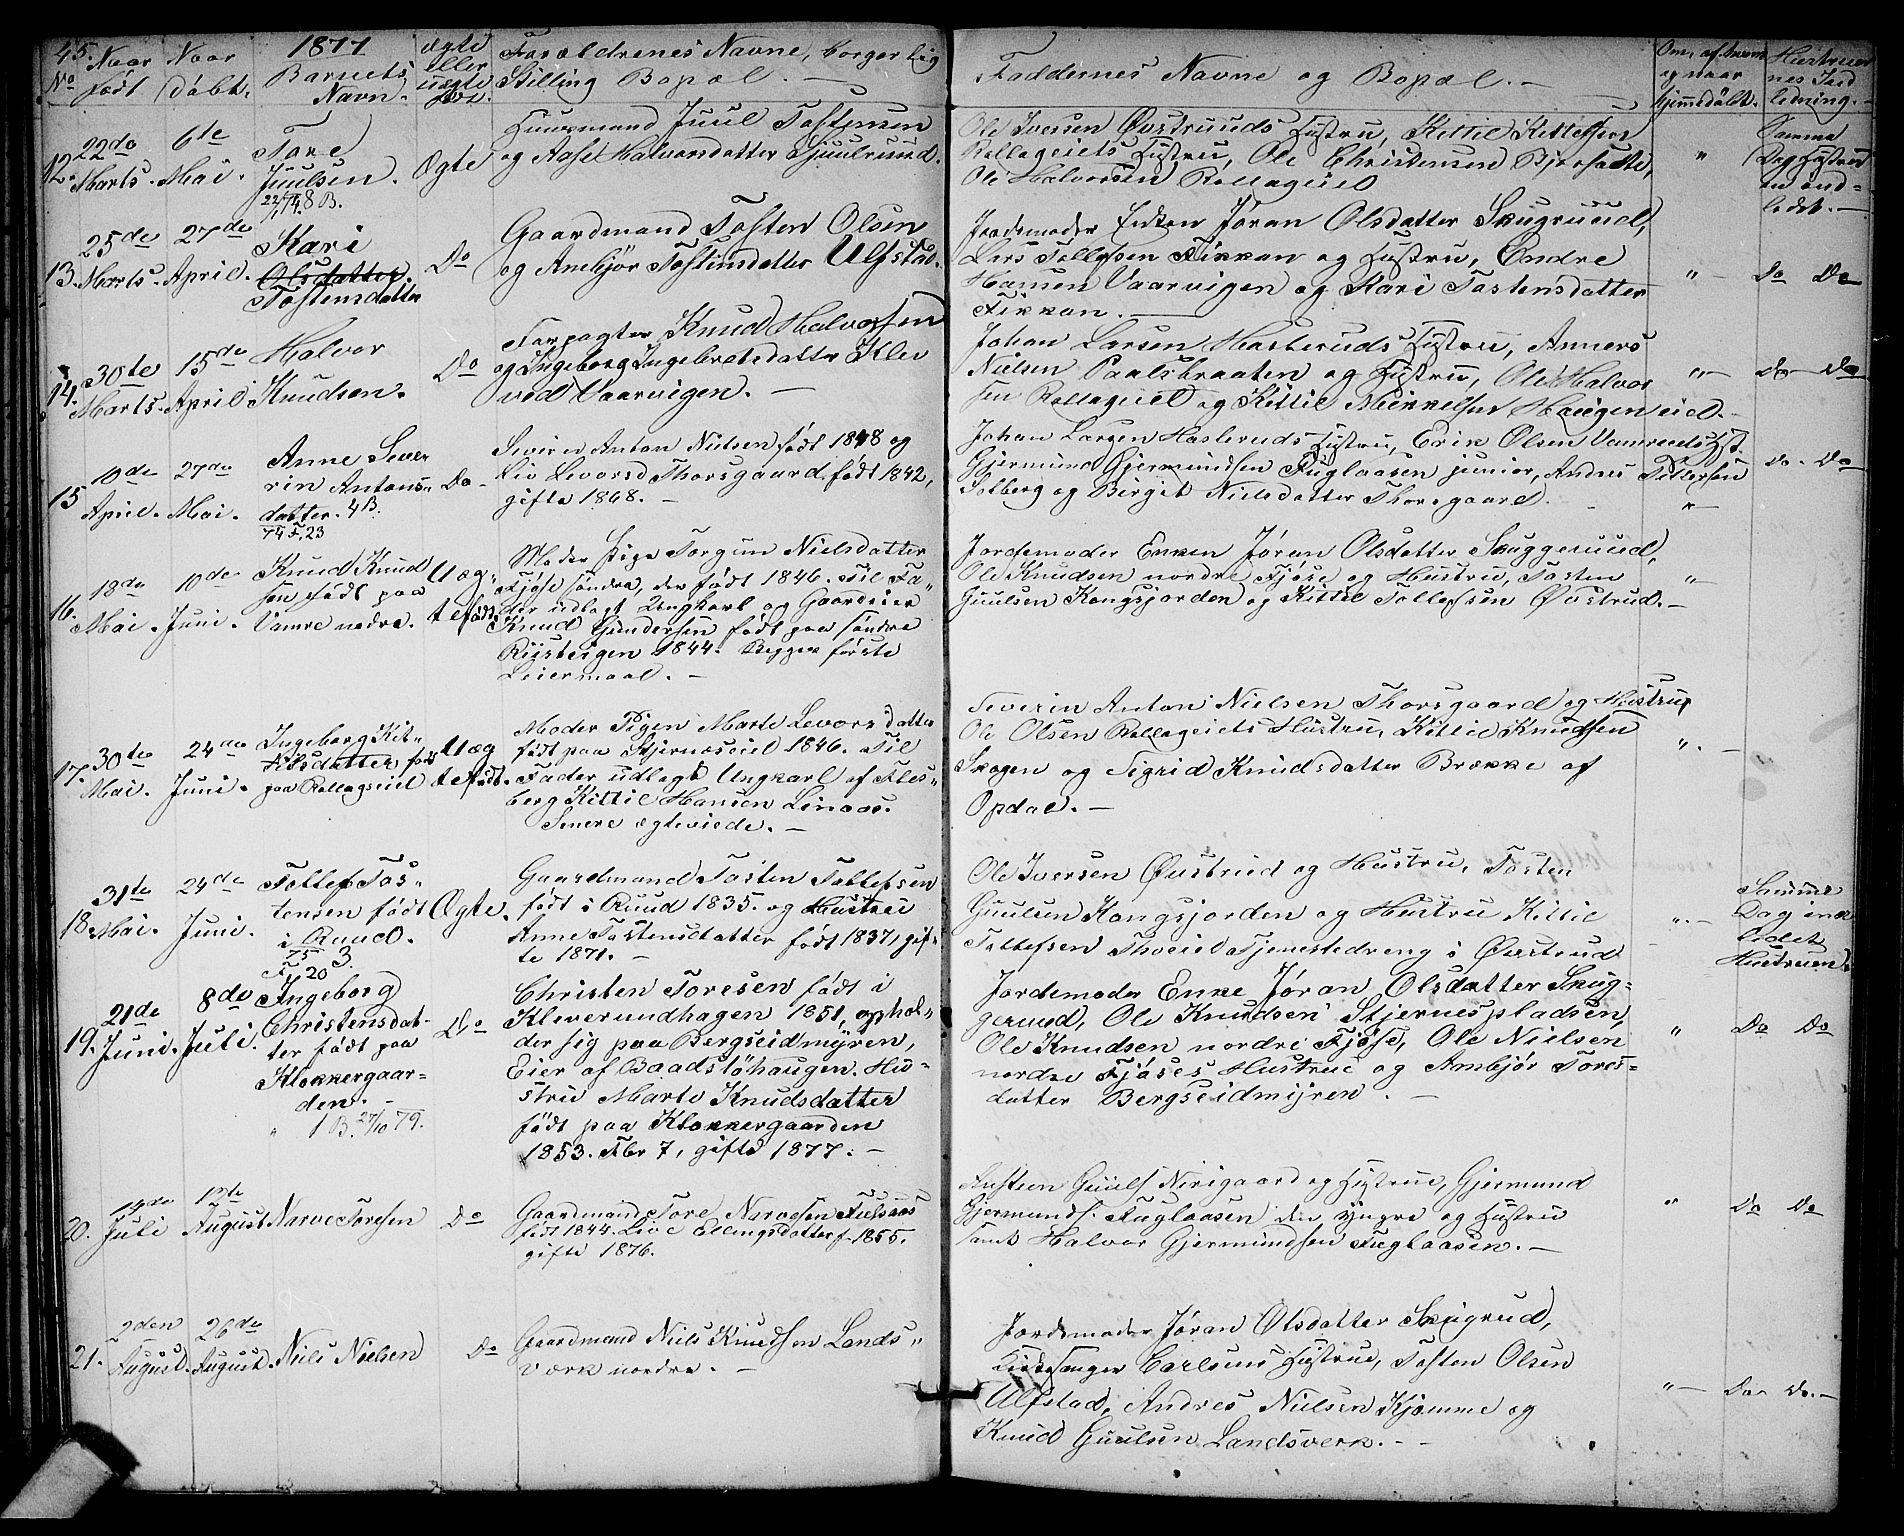 45.
1877
No
Naar født
Naar døbt.
Barnets Navn.
ægte eller uægte
Forældrenes Navne, borgerlig
Stilling Bopæl. —
Faddernes Navne og Bopæl. —
Om, af hvem
og naar
hjemmedøbt.
Hustruer
nes Ind
ledning. —
12.
22de
Marts.
6te
Mai.
Tore
Juulsen.
Ægte
Huusmand Juul Tostensen
og Aase Halvorsdatter
Ole Iversen Øvstruuds Hustru, Kittil Kittelsen
Rollageiets Hustru, Ole Christensen
Ole Halvorsen Rollageiet
"
Samme
Dag Hustru
en ind=
ledet. —
13.
25de
Marts.
27de
April.
Kari
Olsdatter
Tostensdatter
Do
Gaardmand Tosten Olsen
og Anbjør Tostensdatter Ulfstad.
Jordemoder Enken Jøran Olsdatter Skugruud,
Lars Tollefsen Fikkan og Hustru, Endre
Hansen Vaarvigen og Kari Tostensdatter
Fikkan. —
" — Do Do
14.
30te
Marts.
15de
April
Halvor
Knudsen.
Do
Forpagter Knud Halvorsen
og Ingeborg Ingebretsdatter Klev
ved Vaarvigen. —
Johan Larsen Hasleruds Hustru, Anners
Nielsen Paalsbraaten og Hustru, Ole Halvor
sen Rollageiet og Kittil Mikkelsen Haugeneiet. —
" — Do — Do
15.
10de
April.
27de
Mai.
Anne Seve
rin Antons=
datter. 4 B.
Do -
Severin Anton Nielsen født 1848 og
Liv Levorsd Thorsgaard født 1842,
gifte 1868. —
Johan Larsen Hasleruds Hustru, Erik Olsen Vamreeiets Hst.
Gjermund Gjermundsen Fuglaasen junior, Andres Pettersen
Solberg og Birgit Nielsdatter Thorsgaard.
" —
Do - Do
16.
18de
Mai.
10de
Juni.
Knud Knud
sen født paa
Vamre nedre.
Uæg=
tefødt
Moder Pige Torgun Nielsdatter
Fjøse søndre, der født 1846. Til Fa=
der udlagt Ungkarl og Gaardeier
Knud Gundersen født paa søndre
Riisteigen 1844. Begges første
Leiermaal. —
Jordemoder Enken Jøran Olsdatter Skuggeruud,
Ole Knudsen nordre Fjøse og Hustru, Tosten
Guulsen Kongsjorden og Kittil Tollefsen Øvstrud. —
"
17.
30te
Mai.
24de
Juni.
Ingeborg Kit=
tilsdatter født
paa Rollagseiet
Uæg
tefødt.
Moder Pigen Marte Levorsdatter
født paa Stjernoseiet 1846. Til
Fader udlagt Ungkarl af Fles=
berg Kittil Hansen Linaas.
Senere ægteviede. —
Severin Anton Nielsen Thorsgaard og Hustru,
Ole Olsen Rollageiets Hustru, Kittil Knudsen
Skogen og Sigrid Knudsdatter Brække af
Opdal. —
" . —
18.
31te
Mai.
24de
Juni.
Tollef Tos=
tensen født
i Ruud.
Ægte.
Gaardmand Tosten Tollefsen
født i Ruud 1835. og Hustru
Anne Tostensdatter født 1837, gif=
te 1871. —
Ole Iversen Øvstrud og Hustru, Tosten
Guulsen Kongsjorden og Hustru Kittil
Tollefsen Thoeiet Tjenestedreng i Øvstrud
" . —
Samme
Dag ind
ledet
Hustruen.
19.
21de
Juni.
8de
Juli.
Ingeborg
Christensdat-
ter født paa
Klokkergaar=
den. —
" 1 B. 27/10 79.
Do
Christen Toresen født i
Kleverundhagen 1851, ophol=
der sig paa Bergseidmyren,
Eier af Baadstøhaugen. Hu=
stru Marte Knudsdatter
født paa Klokkergaarden
1853. Fbr 7, gifte 1877. —
Jordemoder Enke Jøran Olsdatter Skug-
gerud, Ole Knudsen Stjernespladsen,
Ole Knudsen nordre Fjøse, Ole Nielsen
nordre Fjøses Hustrue og Ambjør Tores=
datter Bergseidmyren. —
"
Do Do
20.
19de
Juli
12te
August
Narve Toresen
Do
Gaardmand Tore Narvesen Fulsaas
født 1844. Live Ellingsdatter f. 1855.
gifte 1876.
Austeen Guuls Nirigaard og Hustrue, Gjermund
Gjermunds. Fuglaasen den yngre og Hustru
samt Halvor Gjermundsen Fuglaasen. —
"
Do Do
21.
2den
August.
26de
August.
Niels Nielsen
Do
Gaardmand Niels Knudsen Lands=
værk nordre. —
Jordemoder Jøran Olsdatter Skugrud,
Kirkesanger Carlsens Hustrue, Tosten Olsen
Ulfstad, Andres Nielsen Kjømme og
Knud Guulsen Landsverk. - -
" — Do - Do. —